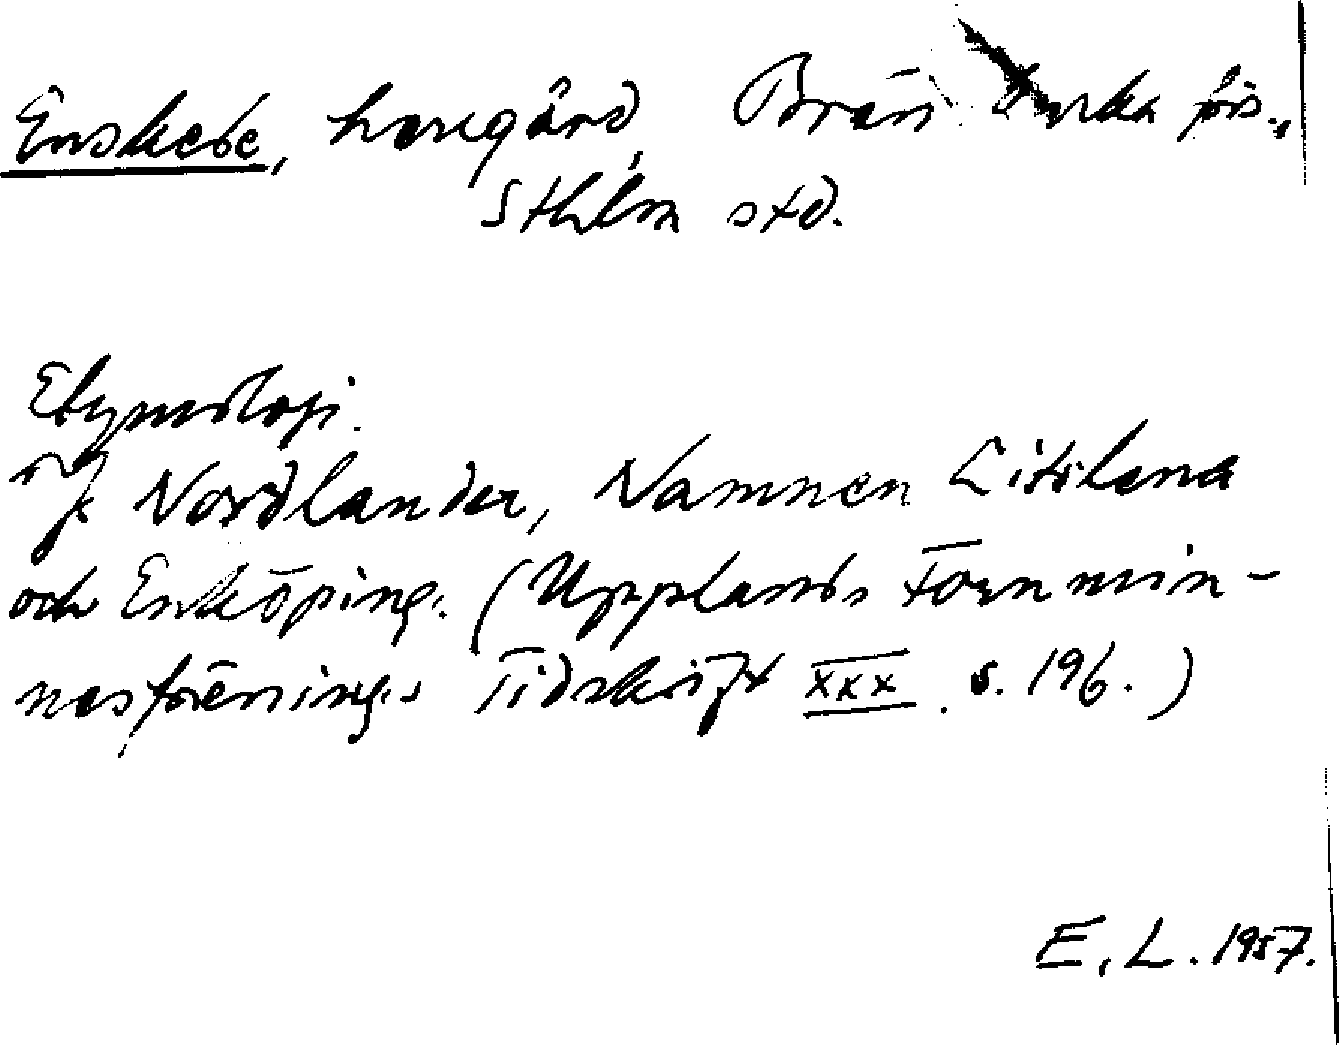 Enskede, herrgård, Brännkyrka förs.,
Sthlm std.
Etymologi.
J. Nordlander, Namnen Litslena
och Enköping. (Upplands Fornmin-
nesförenings Tidskrift XXX. s. 196.)
E. L. 1957.